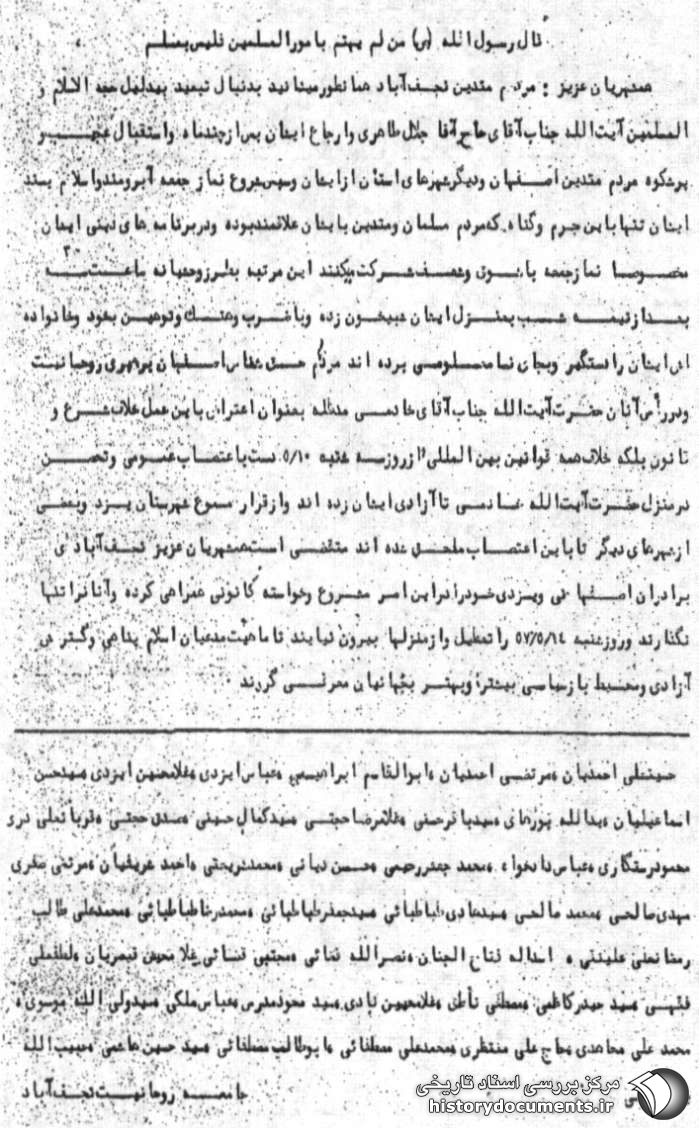 قال رسول الله (ص) من لم یهتم بامور المسلمین فلیس بمسلم
همشهریان عزیز : مردم متدین نجف‌آباد همانطور میدانید بدنبال تبعید بیدلیل حجه الاسلام و
المسلمین آیت‌الله جناب آقای حاج آقا جلال طاهری و ارجاع ایشان پس از چند ماه و استقبال
پرشکوه مردم متدین اصفهان و دیگر شهرهای استان از ایشان و سپس شروع نماز جمعه آبرومند و اسلام پسند
ایشان تنها باین جرم و گناه که مردم مسلمان و متدین بایشان علاقمند بوده و در برنامه های دینی ایشان
مخصوصا نماز جمعه با شوق و شعف شرکت میکنند این مرتبه بطرز وحشیانه ساعت ۳
بعد از نیمه شب بمنزل ایشان شبیخون زده و با ضرب و هتک و توهین بخود و خانواده
اش ایشان را دستگیر و بجای نامعلومی برده اند مردم اصفهان برهبری روحانیت
و در رأس آنان حضرت آیت‌الله جناب آقای خادمی مدظله بعنوان اعتراض باین عمل خلاف شرع و
قانون بلکه خلاف همه قوانین بین المللی از روز سه شنبه ۵/۱۰ دست باعتصاب عمومی و تحصن
در منزل حضرت آیت‌الله خادمی تا آزادی ایشان زده اند و از قرار مسموع شهرستان یزد و بعضی
از شهرهای دیگر تا باین اعتصاب ملحق شده اند متقضی است همشهریان عزیز نجف‌آبادی
برادران اصفهانی و یزدی خود را در این امر مشروع و خواسته قانونی همراهی کرده و آنانرا تنها
نگذارند و روز شنبه ۵۷/۵/۱۴ را تعطیل و از منزلها بیرون نیایند تا ماهیت مدعیان اسلام پناهی و گسترش
آزادی و محیط باز سیاسی بیشتر و بهتر بجهانیان معرفی گردند
حسینعلی احمدیان ومرتضی احمدیان و ابوالقاسم ابراهیمی وعباس ایزدی وغلامحسین ایزدی
اسماعیلیان ویدالله پورهادی وسیدباقر حسنی وغلامرضا حجتی سیدکمال حسینی حجتی وقربانعلی دری
محمود رستگاری وعباس ومحمد جعفر رحیمی وحسن دیانی ومحمد شریعتی واحمد شریفیان ومرتضی صفری
مهدی صالحی ومحمد صالحی سیدهادی طباطبائی سیدجعفر طباطبائی ومحمدرضا طباطبائی ومحمدعلی طالب
رمضانعلی علینقی و اسداله فتاح الجنان ونصرالله قضائی ومجتبی قضائی غلامحسین قیصریان ولطفعلی
فقیهی وسید حیدر کاظمی ومصطفی ناطق وغلامحسین نادی وسید محمود مدرس وعباس ملکی وسیدولی الله موسوی و
محمد علی مجاهدی وحاج علی منتظری ومحمدعلی مصطفائی وابوطالب مصطفائی وسید حسین هاشمی وحبیب الله
جامعه روحانیت نجف‌آباد
مرکز بررسی اسناد تاریخی
historydocuments.ir